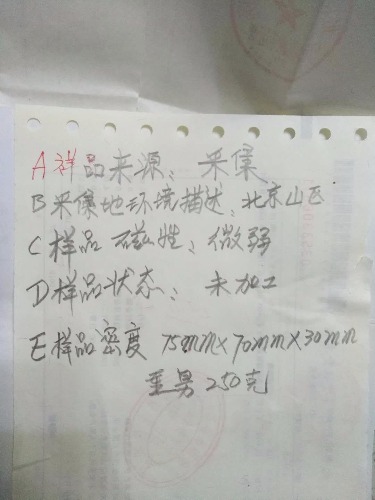 A 样品来源：采集
B 采集地环境描述：北京山区
C 样品磁性：微弱
D 样品状态：未加工
E 样品密度 75mm×70mm×30mm
250克